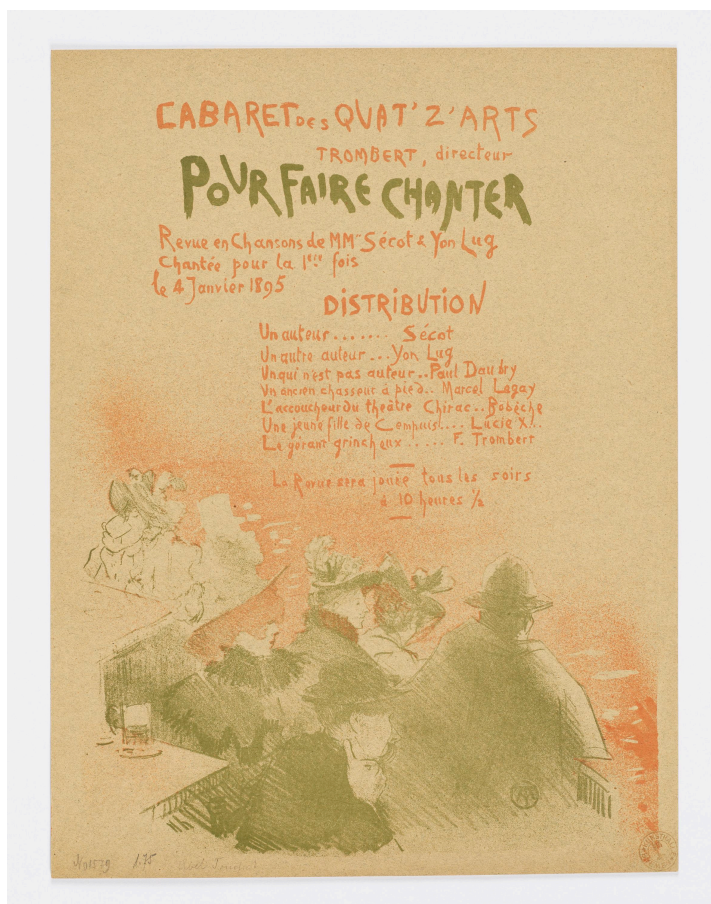 CABARET DES QUAT' Z' ARTS
TROMBERT, directeur
POUR FAIRE CHANTER
Revue en Chansons de MM^rs Sécot & Yon Lug
Chantée pour la 1ère fois
le 4 Janvier 1895
DISTRIBUTION
Un auteur....... Sécot
Un autre auteur... Yon Lug
Un qui n'est pas auteur.. Paul Daubry
Un ancien chasseur à pied.. Marcel Legay
L'accoucheur du théâtre Chirac.. Bobèche
Une jeune fille de Cempuis.... Lucie X!..
Le gérant grincheux..... F. Trombert
La Revue sera jouée tous les soirs
à 10 heures ½
No1579 1.75